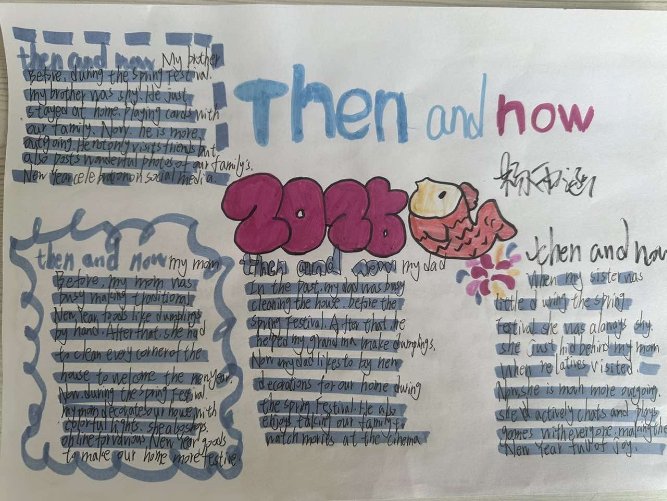 Then and now
2026
then and now My brother
Before, during the Spring Festival.
my brother was shy. He just
stayed at home. Playing cards with
our family. Now he is more
outgoing. He not only visits friends but
also posts wonderful photos of our family's
New Year celebration on social media.
then and now my mom
Before, my mom was
busy making traditional
New Year foods like dumplings
by hand. After that, she had
to clean every corner of the
house to welcome the new year.
Now during the Spring Festival.
my mom decorate our house with
colorful lights. she also shops
online for various New Year goods
to make our home more festive
then and my dad
In the past, my dad was busy
cleaning the house before the
Spring Festival. After that he
helped my grandma make dumplings.
Now my dad likes to by new
decorations for our home during
the Spring Festival. He also
enjoys takin our family to
watch movies at the cinema
then and now
when my sister was
little during the spring
festival she was always shy.
she just hid behind my mom
when relatives visited.
Now she is much more outgoing.
she actively chats and plays
games with everyone, making the
New Year full of joy.